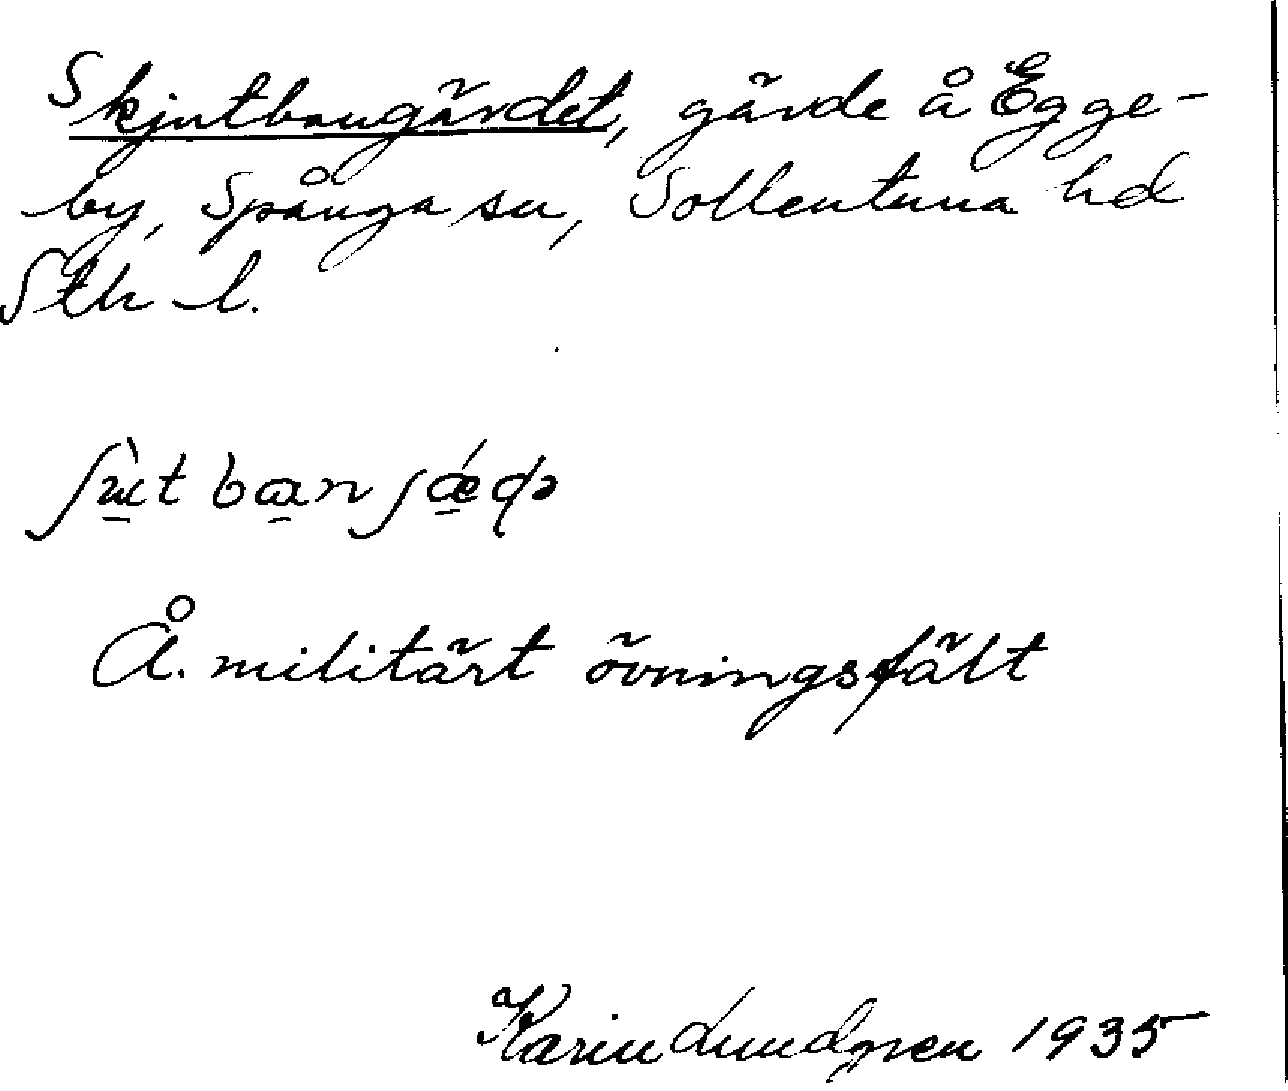 Skjutbangärdet, gärde å Egge-
by, Spånga sn, Sollentuna hd
Sth l.
Å. militärt övningsfält
Karin Lundgren 1935